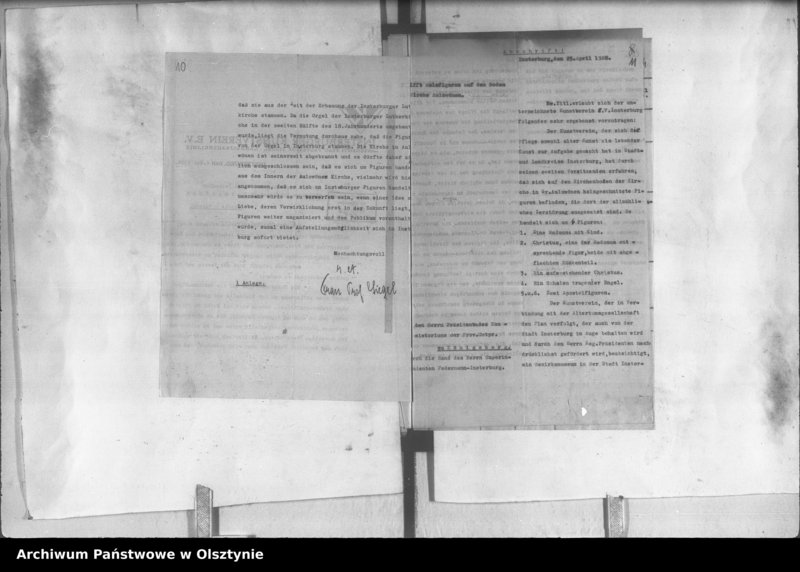 10
daß sie aus der Zeit der Erbauung der Insterburger Lut
kirche stammen. Da die Orgel der Insterburger Lutherki
che in der zweiten Hälfte des 18.Jahrhunderts umgebaut
wurde, liegt die Vermutung durchaus nahe, daß die Figur
von der Orgel in Insterburg stammen. Die Kirche in Aul
wönen ist seinerzeit abgebrannt und es dürfte daher
ausgeschlossen sein, daß es sich um Figuren
aus dem Innern der Aulowöner Kirche, vielmehr wird
angenommen, daß es sich um Insterburger Figuren handelt
wäre es zu verwerfen sein, wenn einer Idee z
Liebe, deren Verwirklichung erst in der Zukunft liegt,
Figuren weiter magaziniert und dem Publikum vorenthalt
würde, zumal eine Aufstellungsmöglichkeit sich in Inst
burg sofort bietet.
Hochachtungsvoll
1 Anlage.
Abschrift!
Insterburg, den 25.April 1928.
8
11
ifft Holzfiguren auf dem Boden
Kirche Aulowönen.
Em.Titl.erlaubt sich der un
terzeichnete Kunstverein E.V.Insterburg
folgendes sehr ergebenst vorzutragen:
Der Kunstverein, der sich die
Pflege sowohl alter Kunst wie lebender
Kunst zur Aufgabe gemacht hat in Stadt
und Landkreise Insterburg, hat durch
seinen zweiten Vorsitzenden erfahren,
daß sich auf dem Kirchenboden der Kir=
che in Gr.Aulowönen holzgeschnitzte Fi=
guren befinden, die dort der allmähli=
chen Zerstörung ausgesetzt sind. Es
handelt sich um 6 Figuren:
1. Eine Madonna mit Kind.
2. Christus, eine der Madonna ent =
sprechende Figur, beide mit abge =
flachtem Rückenteil.
3. Ein auferstehender Christus.
4. Ein Schalen tragender Engel.
5.u.6. Zwei Apostelfiguren.
Der Kunstverein, der in Ver=
bindung mit der Altertumsgesellschaft
den Plan verfolgt, der auch von der
Stadt Insterburg im Auge behalten wird
und durch den Herrn Reg.Präsidenten nach
drücklichst gefördert wird, beabsichtigt,
ein Bezirksmuseum in der Stadt Inster=
den Herrn Präsidenden des
sistoriums der Prov.Ostpr.
Königsberg.
die Hand des Herrn Superin=
denten Federmann-Insterburg.
Archiwum Państwowe w Olsztynie